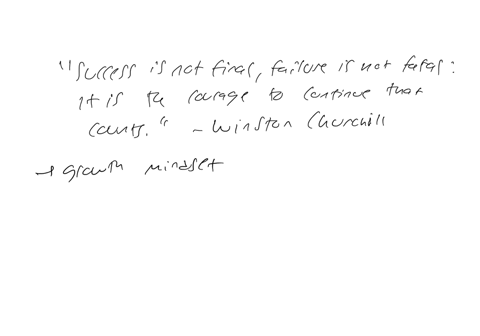 "Success is not final, failure is not fatal:
it is the courage to continue that
counts." - Winston Churchill
→ growth mindset